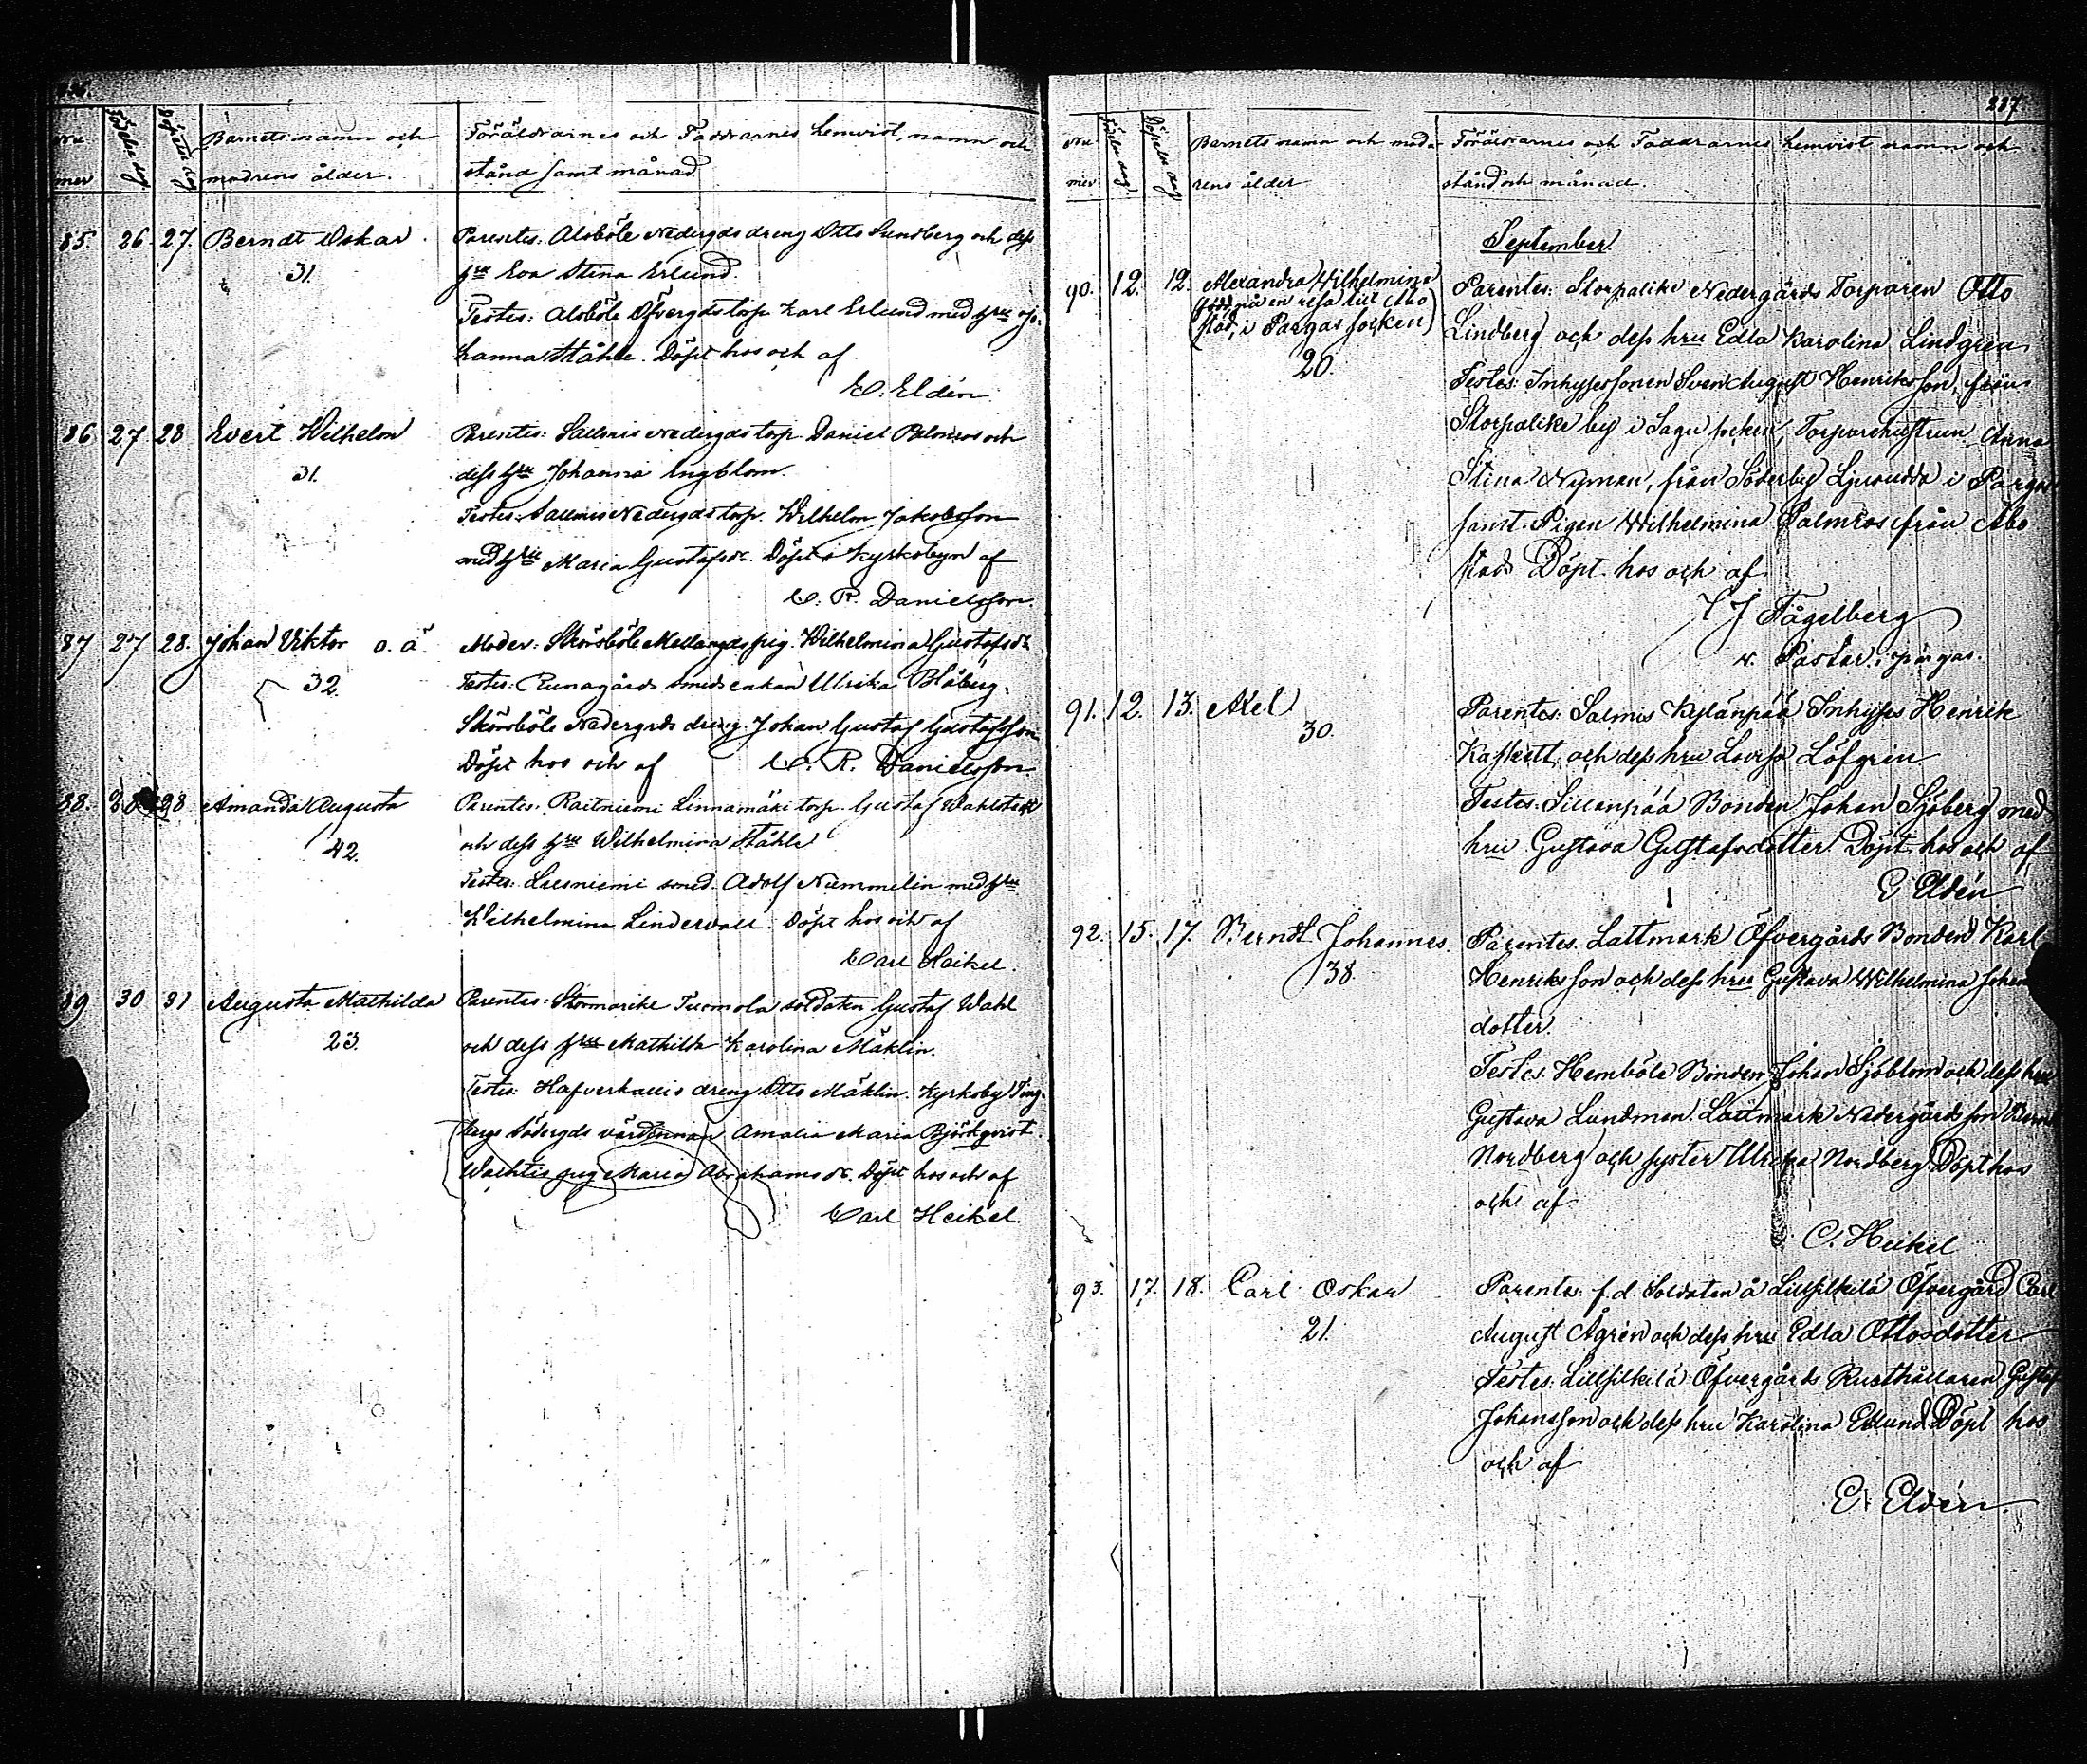 Nu
mer
Födelse dag
Döpelse dag
Barnets namn och
modrens ålder.
Föräldrarnes och Faddrarnes hemvist, namn och
stånd samt månad
85. 26 27. Berndt Oskar
31.
Parentes: Alsböle Nedergds dreng Otto Sundberg och dess
hru Eva Stina Erlund.
Testes: Alsböle Öfvergds torp. Karl Erlund med hru Jo-
hanna Ståhle. Döpt hos och af
E. Eldén
86 27 28 Evert Wilhelm
31.
Parentes: Salmis Nedergds torp. Daniel Palmros och
dess hru Johanna Engblom.
Testes: Salmis Nedergds torp. Wilhelm Jakobsson
med hru Maria Gustafsdr. Döpt i Kyrkobyn af
C. R. Danielsson.
87 27 28. Johan Viktor o. ä.
32.
Moder: Skörsböle Mellangds pig. Wilhelmina Gustafsdr
Testes: Runagårds smedsenkan Ulrika Blåberg.
Skörsböle Nedergrds dreng Johan Gustaf Gustafsson
Döpt hos och af C. R. Danielsson
88. 28 28 Amanda Augusta
42.
Parentes: Raitniemi Linnamäki torp. Gustaf Wahlstedt
och dess hru Wilhelmina Ståhle
Testes: Liesniemi smed. Adolf Nummelin med hru
Wilhelmina Lindervall. Döpt hos och af
Carl Heikel.
89 30 31 Augusta Mathilda
23.
Parentes: Stormarike Tuomola soldaten Gustaf Wahl
och dess hru Mathilda Karolina Mäklin.
Testes: Hafverkallis dreng Otto Mäklin. Kyrkoby
Södergds värdinnan Amalia Maria Björkqvist.
Wachtis pig Maria Abrahamsdr. Döpt hos och af
Carl Heikel.
237
Nu
mer
Födelse dag
Döpelse dag
Barnets namn och mod-
rens ålder
Föräldrarnes och Faddrarnes hemvist namn och
stånd och månad.
September
90. 12. 12. Alexandra Wilhelmina
(född på en resa till Åbo
stad, i Pargas socken)
20.
Parentes: Storpalike Nedergårds Torparen Otto
Lindberg och dess hru Edla Karolina Lindgren
Testes: Inhysessonen Sven August Henriksson, från
Storpalike by i Sagu socken, Torparehustrun Anna
Stina Nyman, från Söderby Ljusudda i Pargas
samt Pigan Wilhelmina Palmros från Åbo
stad Döpt hos och af
Fågelberg
v. Pastor i Pargas.
91. 12. 13. Axel
30.
Parentes: Salmis Kylänpää Inhyses Henrik
Kaskett och dess hru Lovisa Löfgren
Testes: Sillanpää Bonden Johan Sjöberg med
hru Gustava Gustafsdotter Döpt hos och af
E Eldén
92. 15. 17. Berndt Johannes
38.
Parentes. Lattmark Öfvergårds Bonden Karl
Henriksson och dess hru Gustava Wilhelmina Johans
dotter.
Testes: Hemböle Bonden Johan Sjöblom och dess hru
Gustava Lundman. Lattmark Nedergårds son Bernd
Nordberg och syster Ulrika Nordberg Döpt hos
och af
C. Heikel
93. 17. 18. Carl Oskar
21.
Parentes: f.d. Soldaten å Lillsilkilä Öfvergård Carl
August Ågren och dess hru Edla Ottosdotter
Testes: Lillsilkilä Öfvergårds Rusthållaren Gustaf
Johansson och dess hru Karolina Edlund Döpt hos
och af
E. Eldén.